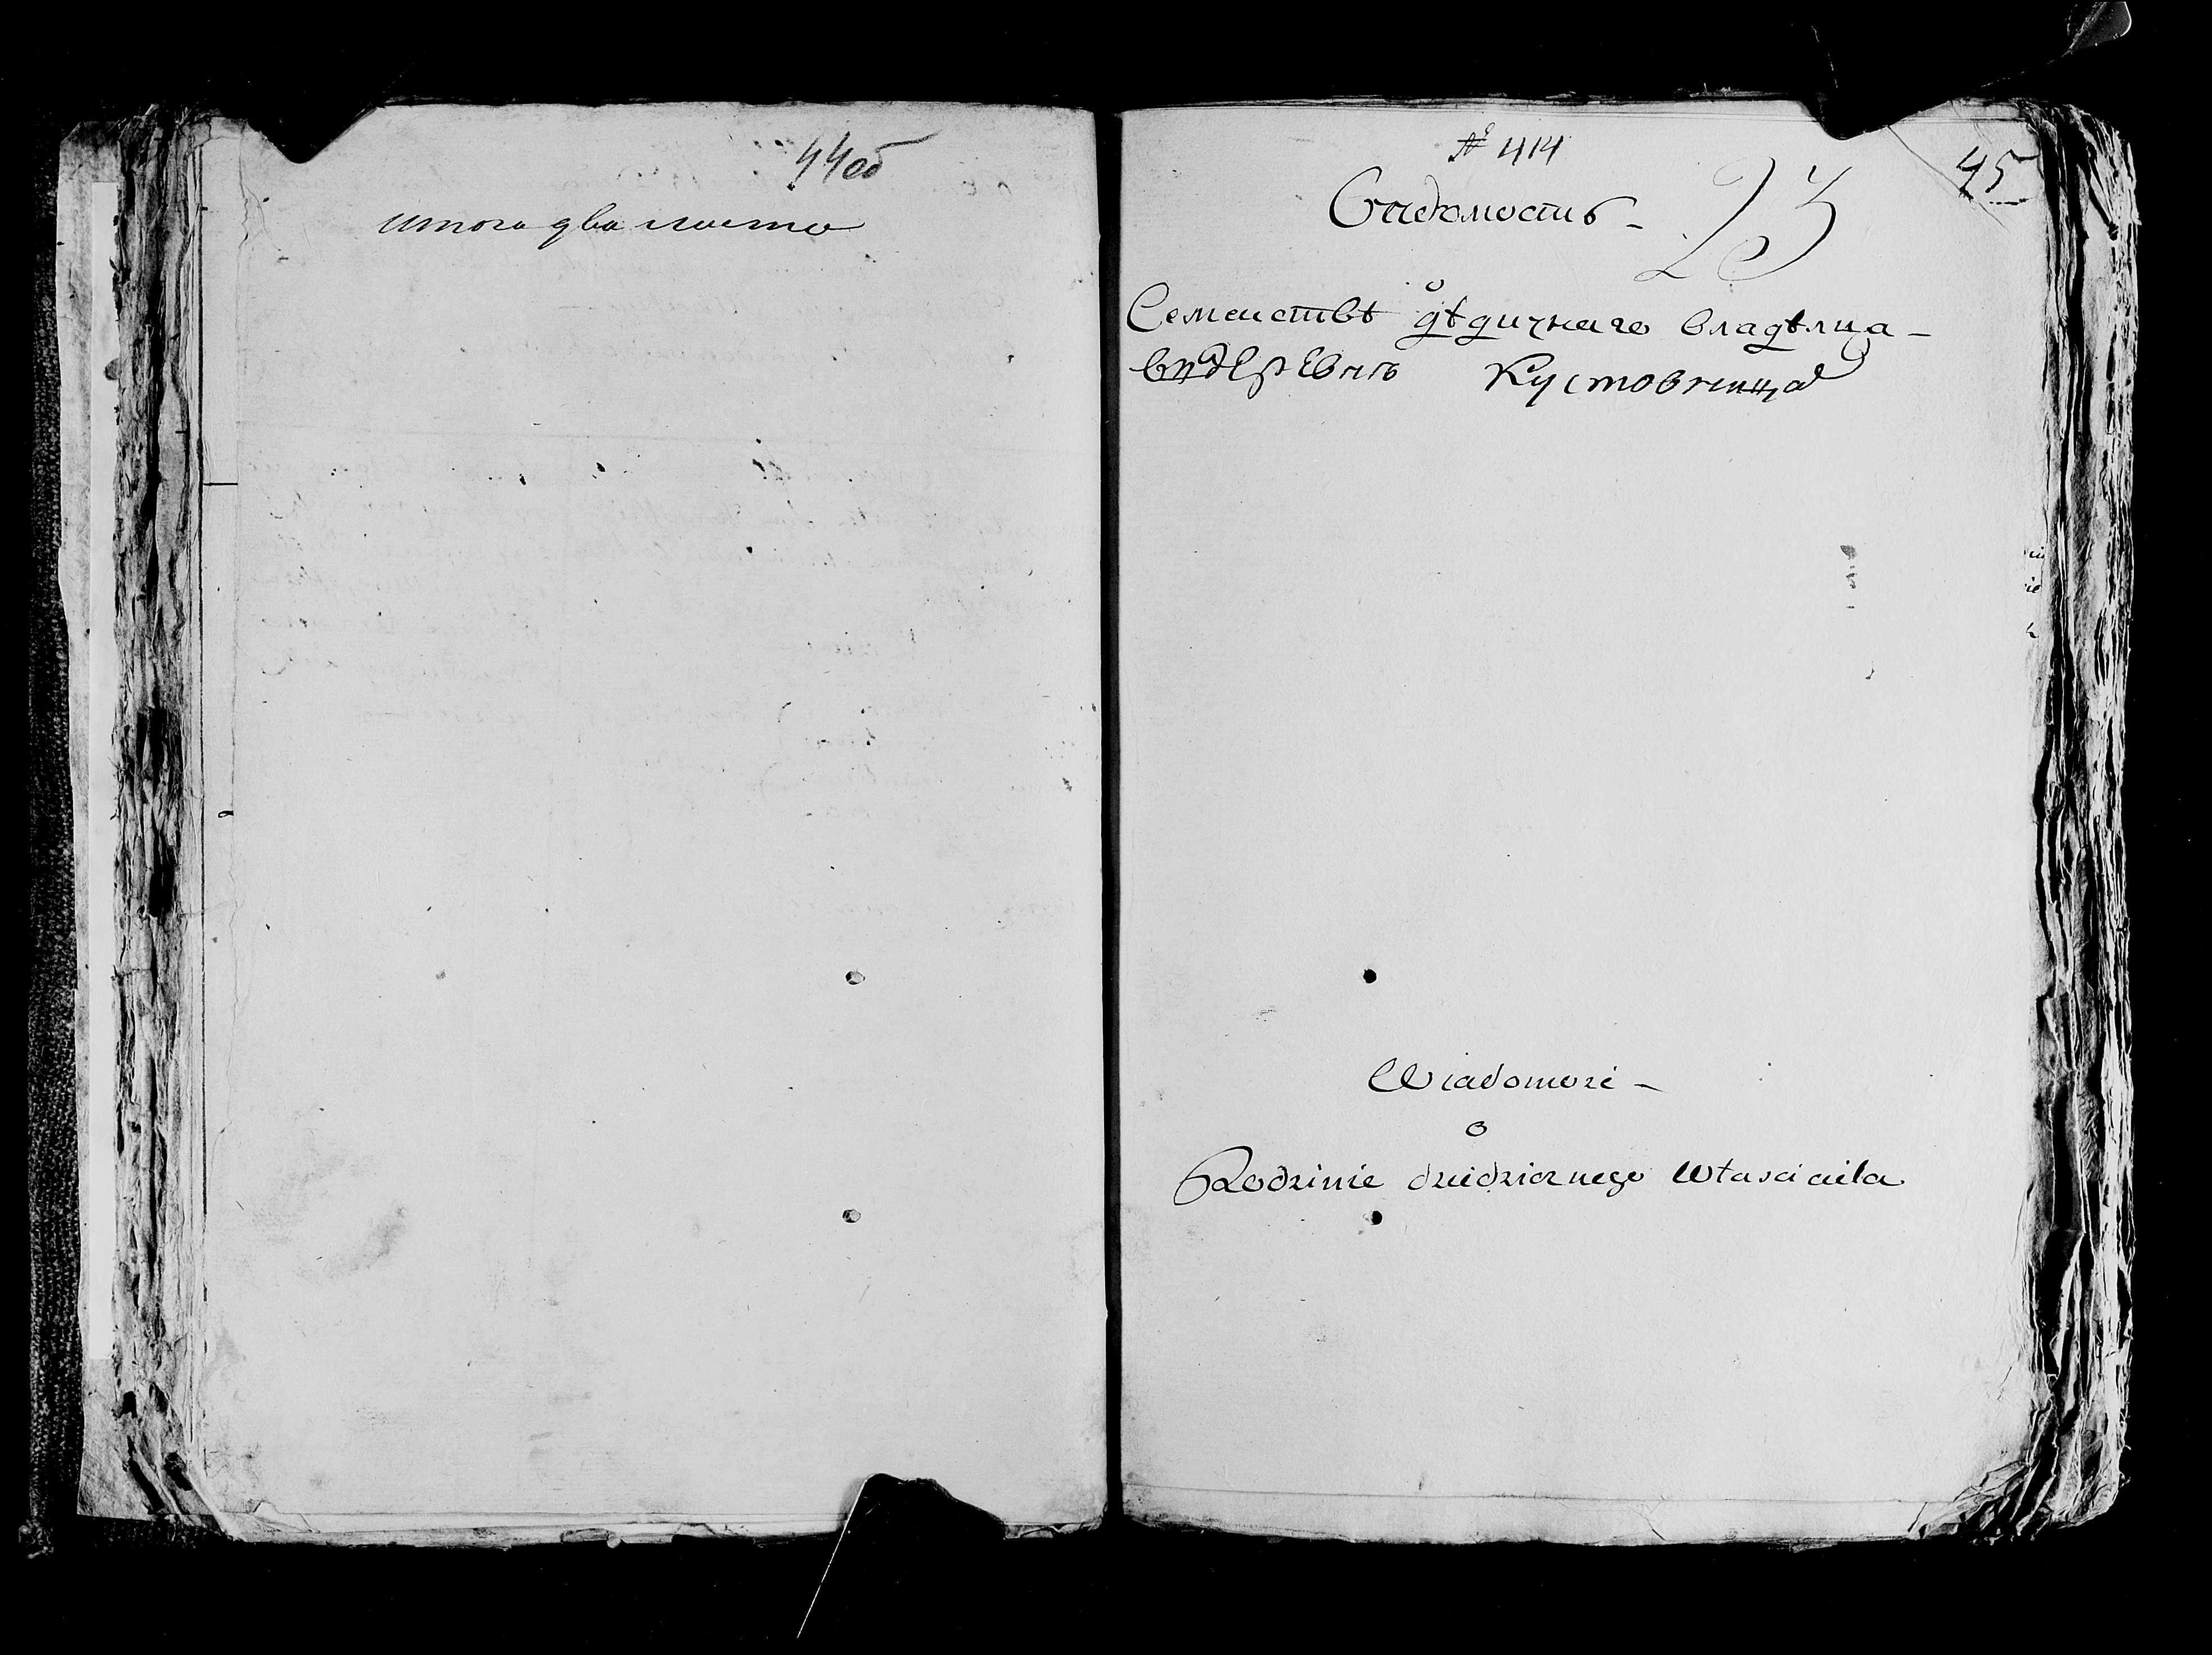 44об
итого два листа
№ 414
45
Вѣдомость -
23
о
Семеиствѣ дѣдичнаго владѣлца -
въ дЕрЕвнѣ Кустовница
Wiadomosć -
o
Rodzinie dziedzicznego Własciciela